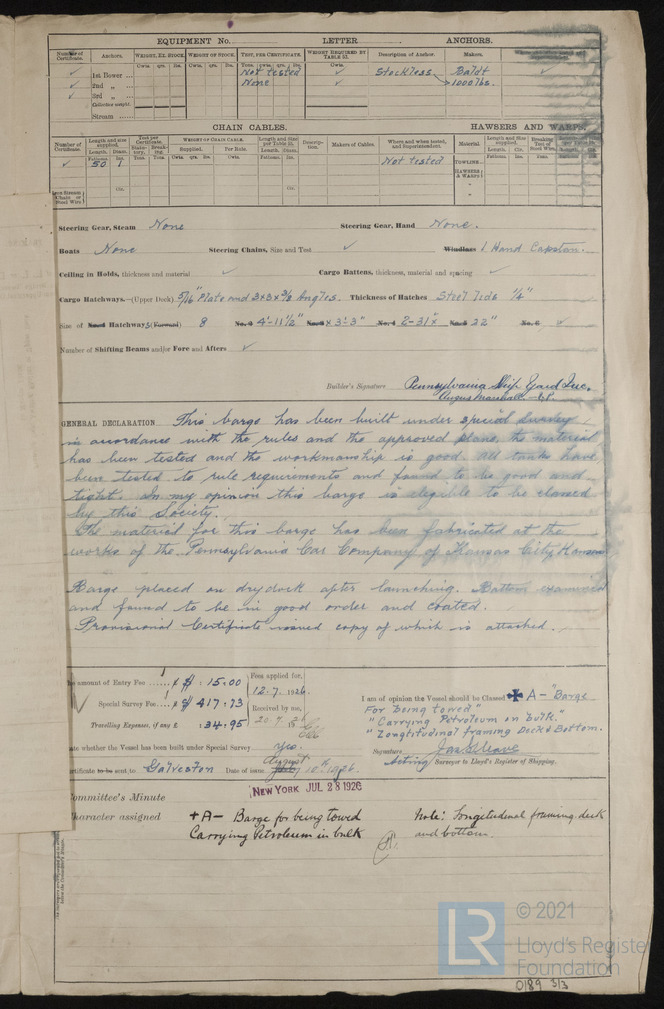 EQUIPMENT No. LETTER ANCHORS.
Number of Certificate. Anchors. WEIGHT, EX. STOCK. WEIGHT OF STOCK. TEST, PER CERTIFICATE. WEIGHT REQUIRED BY TABLE 31. Description of Anchor. Makers.
Cwts. qrs. lbs. Cwts. qrs. lbs. Tons. Cwts. qrs. lbs. Cwts.
✓ 1st Bower ... Not tested ✓ Stockless Baldt ✓
✓ 2nd „ ... None ✓ 1000 lbs.
✓ 3rd „
Collective weight.
Stream ......
CHAIN CABLES. HAWSERS AND WARPS.
Number of Certificate. Length and size supplied. Test per Certificate. WEIGHT OF CHAIN CABLE. Length and Size per Table 31. Description. Makers of Cables. Where and when tested, and Superintendent. Material. Length and size supplied. Breaking Test of Steel Wire.
Length. Diam. Statutory. Breaking. Supplied. Per Rule. Length. Diam. Length. Cir.
Fathoms. Ins. Tons. Tons. Cwts. qrs. lbs. Cwts. Fathoms. Ins. TOWLINE Fathoms. Ins. Tons.
✓ 50 1 Not tested HAWSERS & WARPS
Cir. Cir.
Iron Stream Chain or Steel Wire
Steering Gear, Steam None Steering Gear, Hand None.
Boats None Steering Chains, Size and Test ✓ Windlass 1 Hand Capstan.
Ceiling in Holds, thickness and material ✓ Cargo Battens, thickness, material and spacing ✓
Cargo Hatchways.—(Upper Deck) 5/16" Plate and 3x3x3/8 Angles. Thickness of Hatches Steel lids 1/4"
Size of Hatchways (Forward) 8 4'-11 1/2" x 3'-3" 2-31" x 22" No. 6 ✓
Number of Shifting Beams and/or Fore and Afters ✓
Builder's Signature Pennsylvania Ship Yard Inc.
Angus Marshall
GENERAL DECLARATION This barge has been built under special survey
in accordance with the rules and the approved plans, the material
has been tested and the workmanship is good. All tanks have
been tested to rule requirements and found to be good and
tight. In my opinion this barge is eligible to be classed
by this Society.
The material for this barge has been fabricated at the
works of the Pennsylvania Car Company of Kansas City Kansas
Barge placed on drydock after launching. Bottom examined
and found to be in good order and coated.
Provisional Certificate issued copy of which is attached.
amount of Entry Fee ..... $ : 15.00 Fees applied for,
12.7.1926.
Special Survey Fee .... $ 417.73 Received by me,
Travelling Expenses, if any £ : 34.95 20.9.
I am of opinion the Vessel should be Classed ✠ A - "Barge
For being towed"
"Carrying Petroleum in bulk."
"Longitudinal framing Deck & Bottom.
whether the Vessel has been built under Special Survey Yes. Signature Jas Gleave
Acting Surveyor to Lloyd's Register of Shipping.
to be sent to Galveston Date of issue August 10th 1926.
NEW YORK JUL 28 1926
Committee's Minute
Character assigned +A- Barge for being towed
Carrying Petroleum in bulk
Note: Longitudinal framing deck
and bottom.
LR © 2021
Lloyd's Register
Foundation
0189 3/3